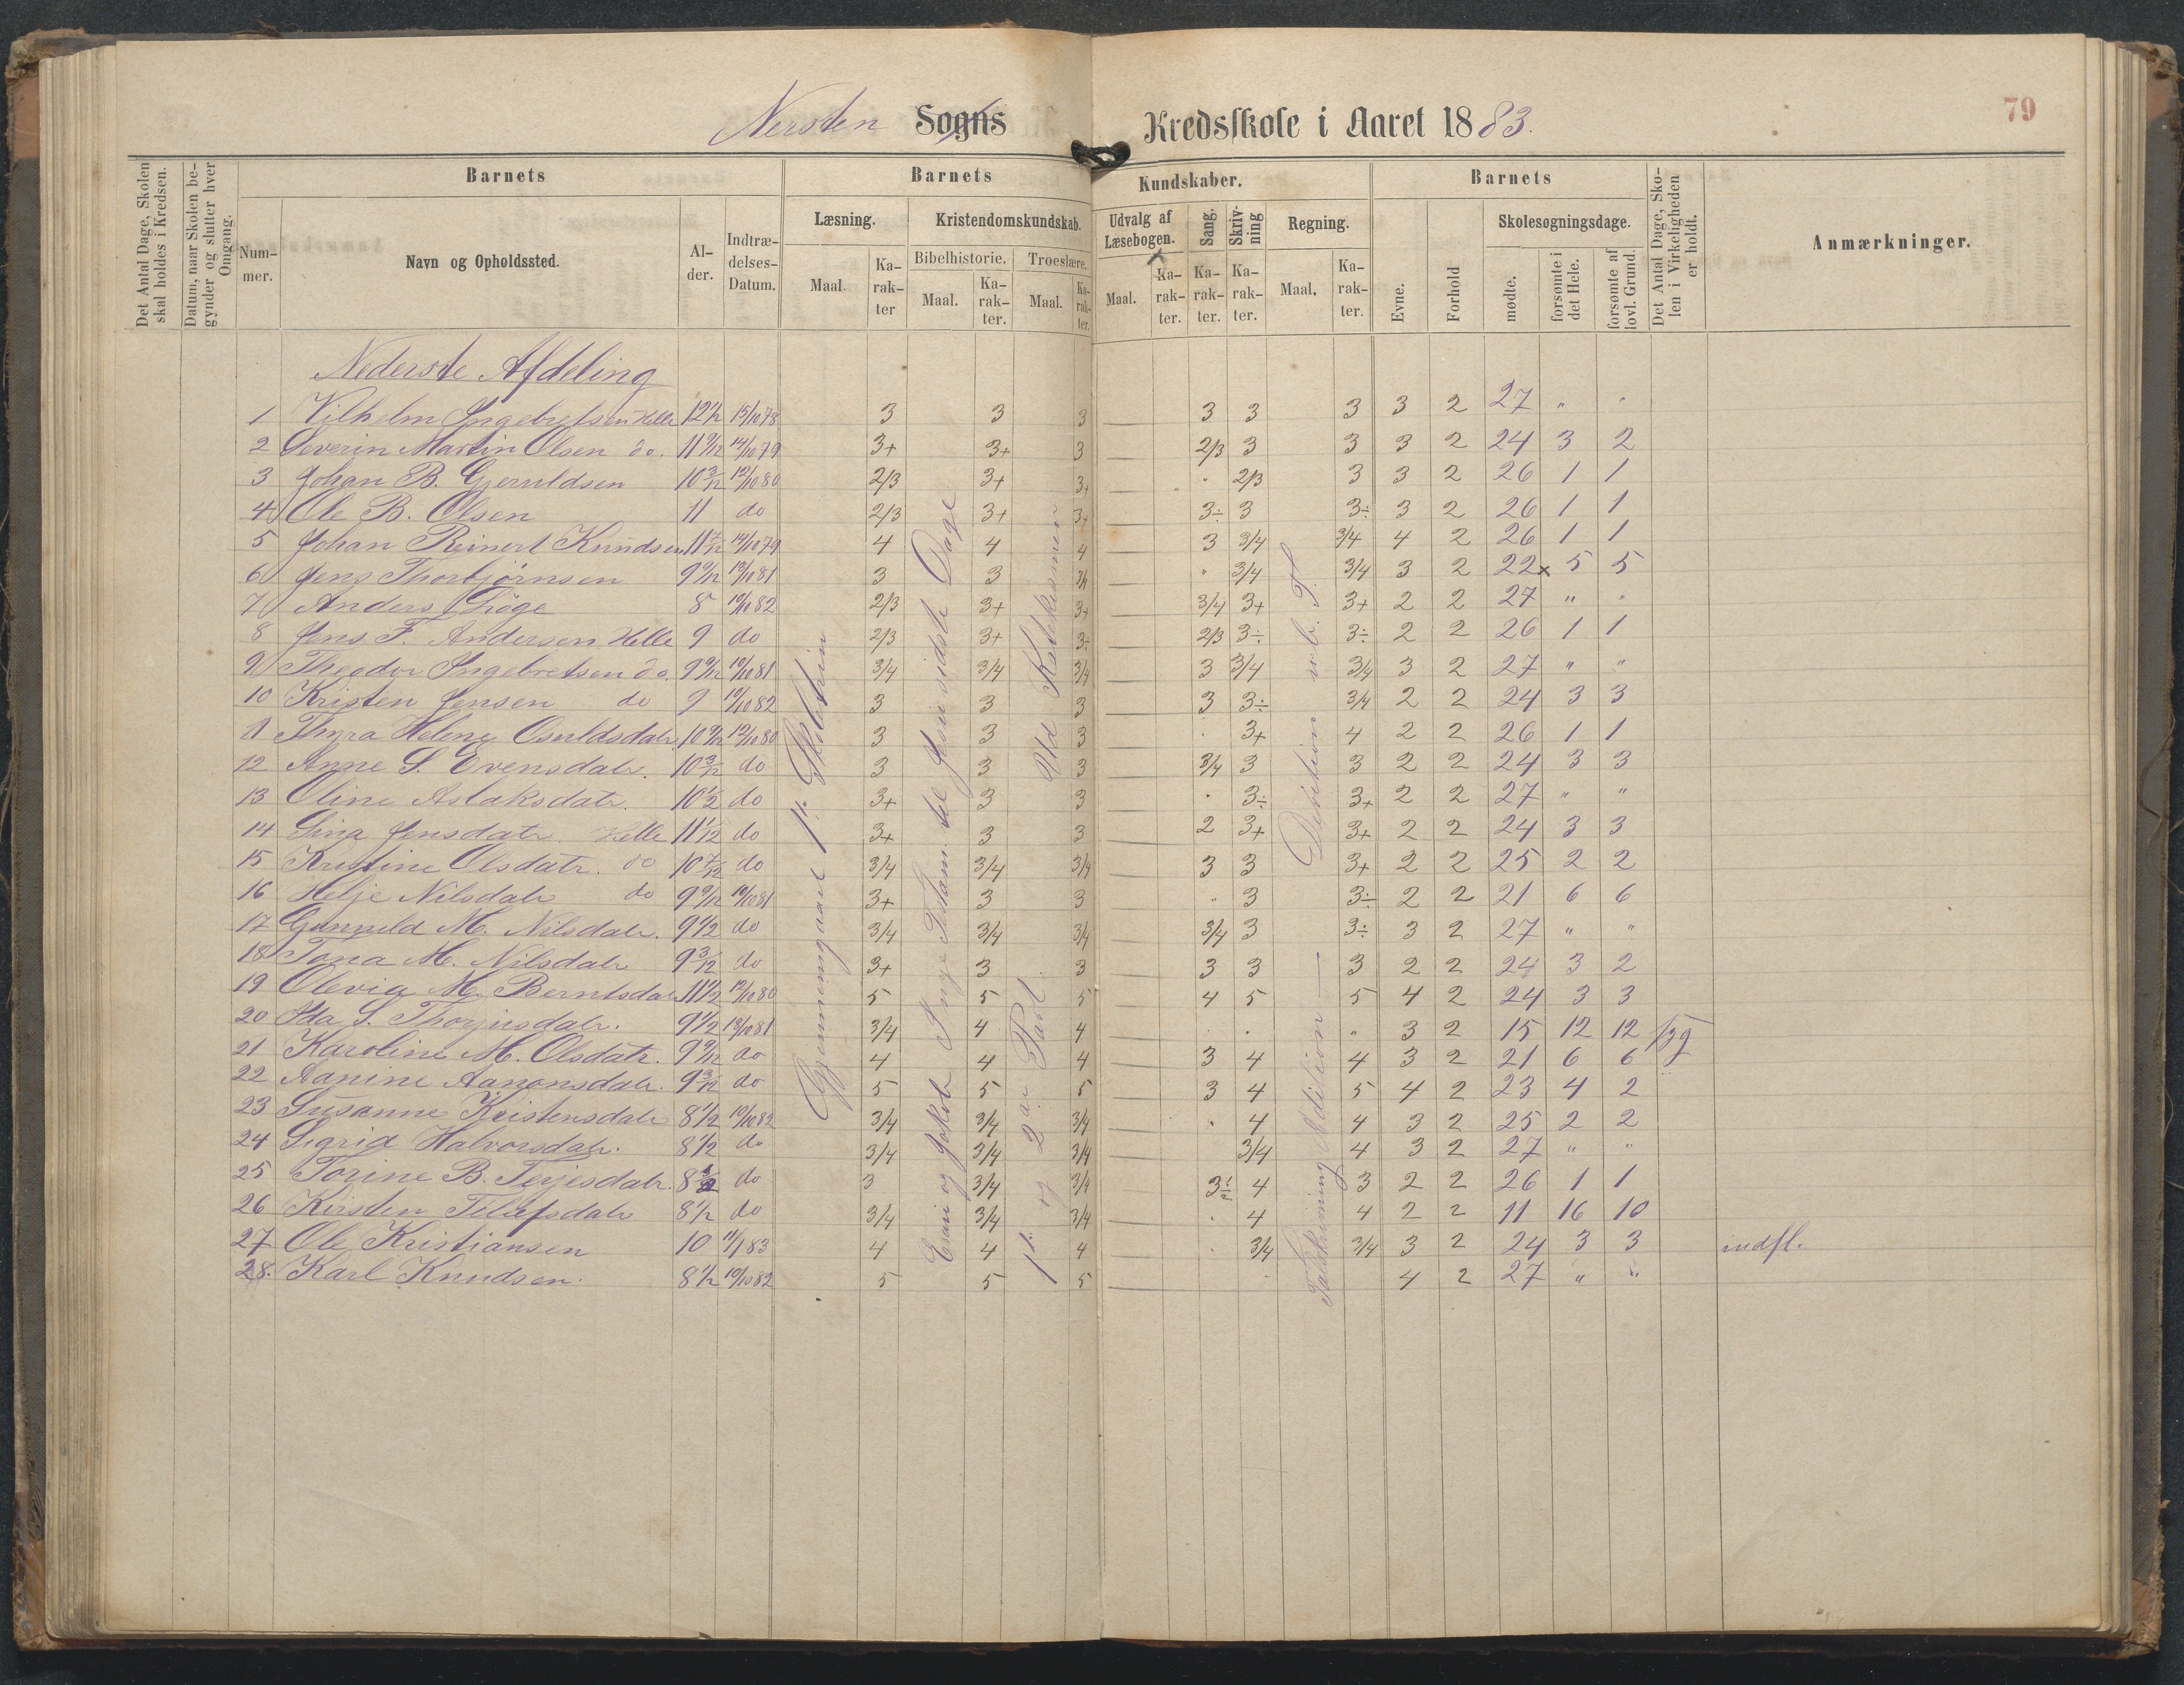 79
Nersten Sogns Kredsskole i Aaret 1883.
Det Antal Dage, Skolen skal holdes i Kredsen.
Datum, naar Skolen begynder og slutter hver Omgang.
Barnets
Nummer.
Navn og Opholdssted.
Alder.
Indtrædelses-Datum.
Barnets Kundskaber.
Læsning.
Maal.
Karakter
Kristendomskundskab.
Bibelhistorie.
Maal.
Karakter.
Troeslære.
Maal.
Karakter.
Udvalg af Læsebogen.
Maal.
Karakter.
Sang.
Karakter.
Skrivning
Karakter.
Regning.
Maal.
Karakter.
Barnets
Evne.
Forhold
Skolesøgningsdage.
mødte.
forsømte i det Hele.
forsømte af lovl. Grund.
Det Antal Dage, Skolen i Virkeligheden er holdt.
Anmærkninger.
Nederste Afdeling
1 Vilhelm Ingebretsen Helle 12½ 15/10 78 3 3 3 3 3 3 3 2 27 " "
2 Severin Martin Olsen do. 11 9/12 14/10 79 3+ 3+ 3 2/3 3 3 3 2 24 3 2
3 Johan B. Gjeruldsen 10 3/12 12/10 80 2/3 3+ 3+ " 2/3 3 3 2 26 1 1
4 Ole B. Olsen 11 do 2/3 3+ 3+ 3÷ 3 3÷ 3 2 26 1 1
5 Johan Reinert Knudsen 14/10 79 4 4 4 3 3/4 3/4 4 2 26 1 1
6 Jens Thorbjørnsen 9 9/12 13/10 81 3 3 3/4 " 3/4 3/4 3 2 22x 5 5
7 Anders 8 10/10 82 2/3 3+ 3+ 3/4 3+ 3+ 2 2 27 " "
8 Jens F. Andersen Helle 9 do 2/3 3+ 3÷ 2/3 3÷ 3÷ 2 2 26 1 1
9 Theodor Ingebretsen do. 9 9/12 10/10 81 3/4 3/4 3/4 3 3/4 3/4 3 2 27 " "
10 Kristen Jensen do 9 10/10 82 3 3 3 3 3÷ 3/4 2 2 24 3 3
11 Thyra Helene Osuldsdatr. 10 9/12 12/10 80 3 3 3 " 3+ 4 2 2 26 1 1
12 Anne S. Evensdatr. 10 3/12 do 3 3 3 3/4 3 3 2 2 24 3 3
13 Oline Aslaksdatr. 10½ do 3+ 3 3 " 3÷ 3+ 2 2 27 " "
14 Sina Jensdatr Helle 11 1/12 do 3+ 3 3 2 3+ 3+ 2 2 24 3 3
15 Kristine Olsdatr. do 10 7/12 do 3/4 3/4 3/4 3 3 3+ 2 2 25 2 2
16 Helje Nilsdatr do 9 9/12 10/10 81 3+ 3 3 " 3 3÷ 2 2 21 6 6
17 Gunnuld M. Nilsdatr. 9½ do 3/4 3/4 3/4 3/4 3 3÷ 3 2 27 " "
18 Tona M. Nilsdatr 9 3/12 do 3+ 3 3 3 3 3 2 2 24 3 2
19 Olevia M. Berntsdatr 11½ 12/10 80 5 5 5 4 5 5 4 2 24 3 3
20 Ada S. Thorjusdatr. 9½ 13/10 81 3/4 4 4 " " " 3 2 15 12 12 syg
21 Karoline M. Olsdatr. 9 9/12 do 4 4 4 3 4 4 3 2 21 6 6
22 Aanine Aanonsdatr. 9 3/12 do 5 5 5 3 4 5 4 2 23 4 2
23 Susanne Kristensdatr 8½ 10/10 82 3/4 3/4 3/4 " 4 4 3 2 25 2 2
24 Sigrid Halvorsdatr. 8½ do 3/4 3/4 3/4 3/4 4 3 2 27 " "
25 Torine B. Terjesdatr. do 3 3/4 3/4 4 3 2 2 26 1 1
26 Kirsten Tellefsdatr 8½ do 3/4 3/4 3/4 " 4 4 2 2 11 16 10
27 Ole Kristiansen 10 11/1 83 4 4 4 " 3/4 3/4 3 2 24 3 3 indfl.
28. Karl Knudsen. 8½ 10/10 82 5 5 5 4 2 27 " "
Gjennemgaaet 1ste Skoletrin
Esau og Jakob Nye Testam. til Jesu sidste Dage
1ste og 2den Part. Uld Katekismen
Talskrivning Adition — Divition